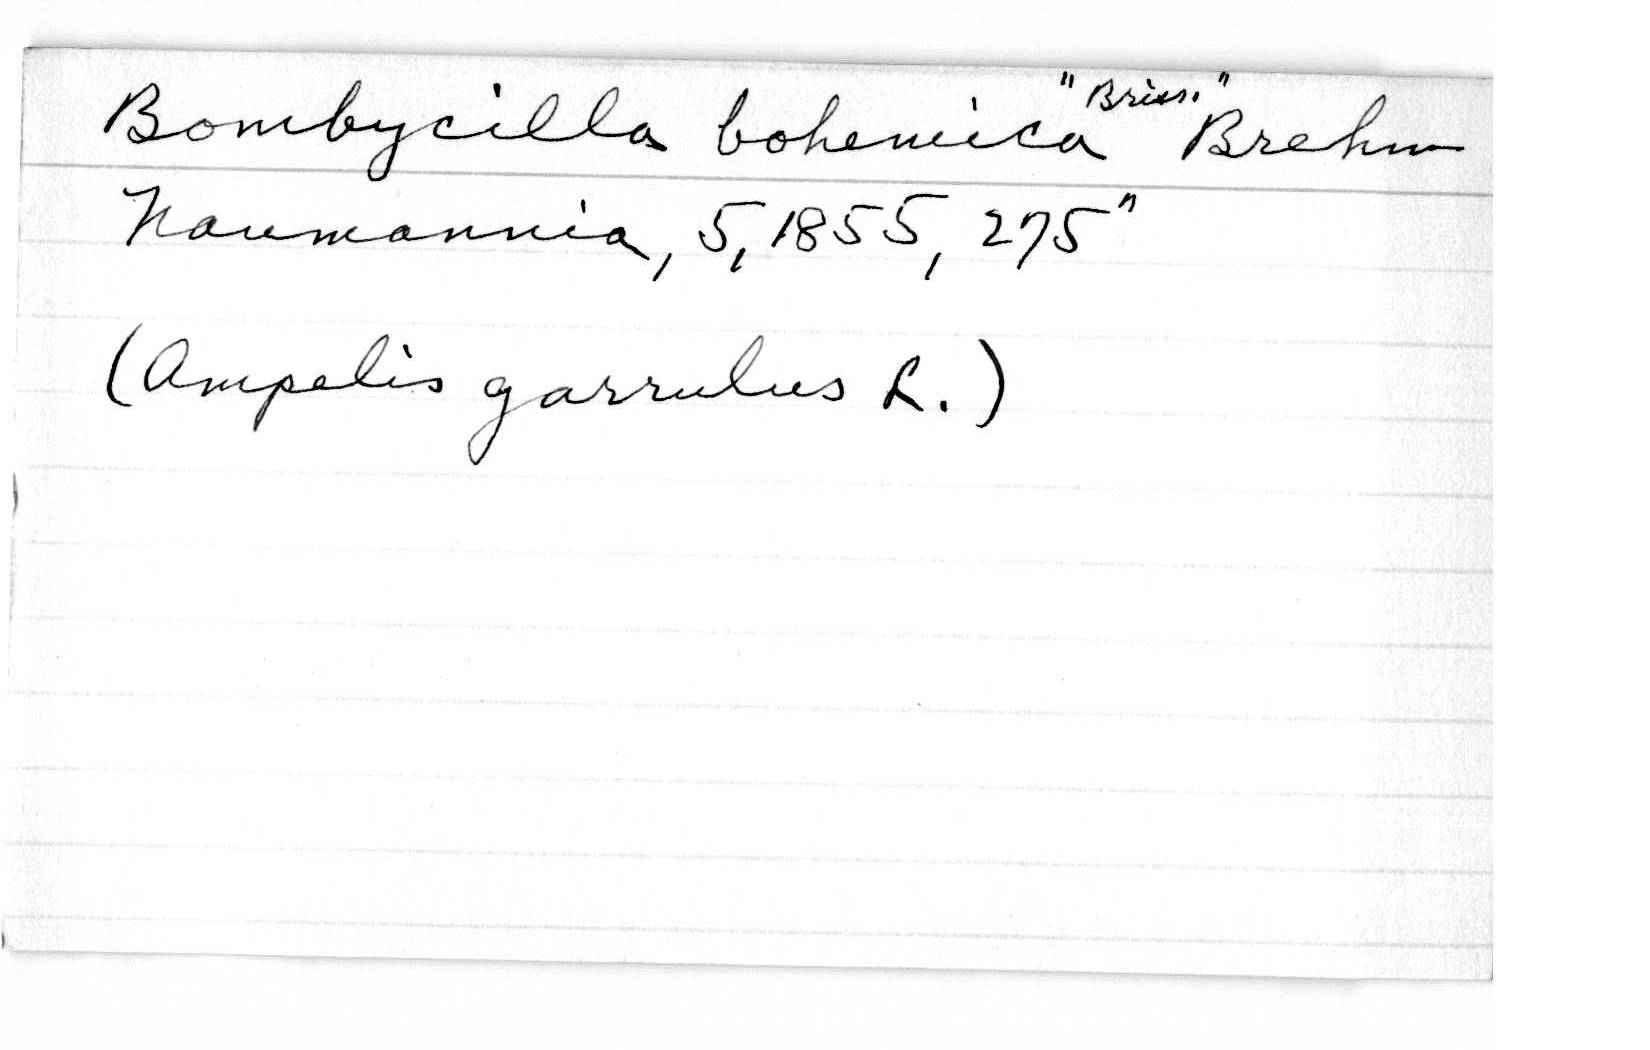 Bombycilla bohemica "Briss." Brehm
Naumannia, 5, 1855, 275"
(Ampelis garrulus L.)